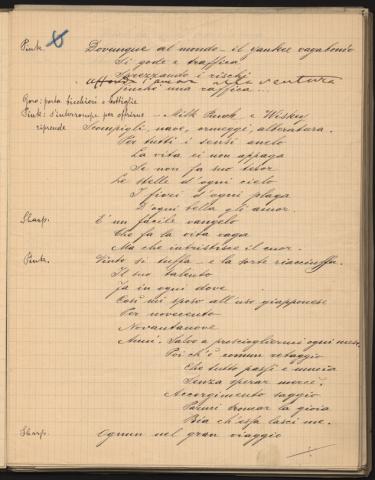 Pink. Dovunque al mondo - il yankee vagabondo
Si gode e traffica
Sprezzando i rischi
affonda l'ancora alla ventura
finchè una raffica...
Goro: porta bicchieri e bottiglie
Pink: s'interrompe per offrire - Milk Punch o Wisky
riprende Scompigli, nave, ormeggi, alberatura.
Per tutti i sensi anelo
La vita ei non appaga
Se non fa suo tesor
Le stelle d'ogni cielo
I fiori d'ogni plaga
D'ogni bella gli amor.
Sharp. È un facile vangelo
Che fa la vita vaga
Ma che intristisce il cuor.
Pink. Vinto si tuffa - e la sorte riacciuffa.
Il suo talento
Fa in ogni dove
Così mi sposo all'uso giapponese
Per novecento
Novantanove
Anni. Salvo a prosciogliermi ogni mese.
Poi ch'è comun retaggio
Che tutto passi e muoia
Senza sperar mercè,
Accorgimento saggio
Parmi tromar la gioia
Pria ch'essa lasci me.
Sharp. Ognun nel gran viaggio